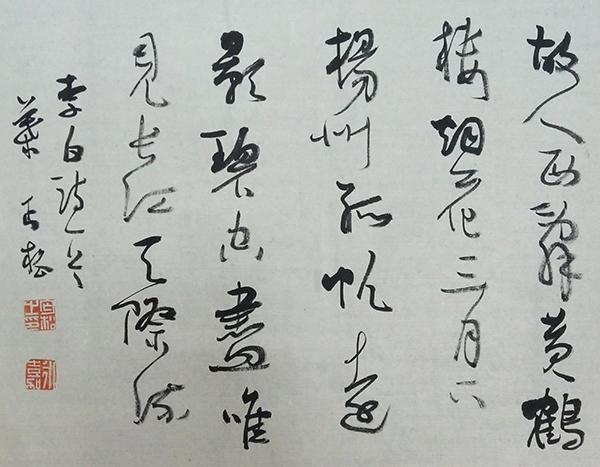 故人西辞黄鹤
楼烟花三月下
揚州孤帆遠
影碧空盡唯
見長江天際流
李白詩一首
葉